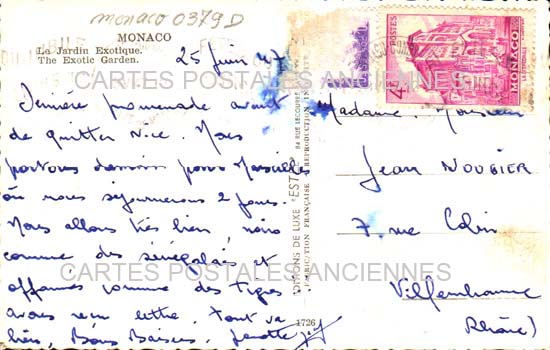 monaco 0379D
MONACO
Le Jardin Exotique.
The Exotic Garden.
25 Juin 47
CARTES POSTALES ANCIENNES
Dernière promenade avant
de quitter Nice. Nous
partons demain pour Marseille
où nous séjournerons 2 jours.
Nous allons très bien, noirs
comme des sénégalais et
affamés comme des tigres
avons reçu lettre. Tout va
bien, Bons Baisers,
EDITIONS DE LUXE "ESTEL"
REPRODUCTION INTERDITE
FABRICATION FRANÇAISE
1726
POSTES
MONACO
4F
Madame, Monsieur
Jean NOUGIER
7. rue Colin
Villeurbanne
Rhône)
CARTES POSTALES ANCIENNES